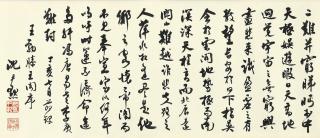 難并窮睇眄於中
天極娛遊於暇日天高地
迥覺宇宙之無窮興
盡悲來識盈虛之
有數望長安於日下指吳
會於雲間地勢極而南
溟深天柱高而北辰遠
關山難越誰悲失路之
人萍水相逢盡是他
鄉之客懷帝閽而
不見奉宣室以何年
嗚呼時運不齊命途
多舛馮唐易老李廣
難封 丁亥
王勃滕王閣序
沈尹默